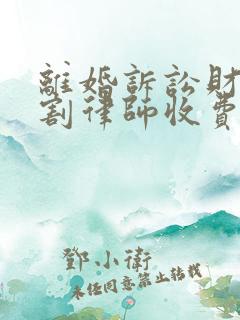 離婚訴訟財
割律師收費
鄧小衛
未経同意禁止轉載